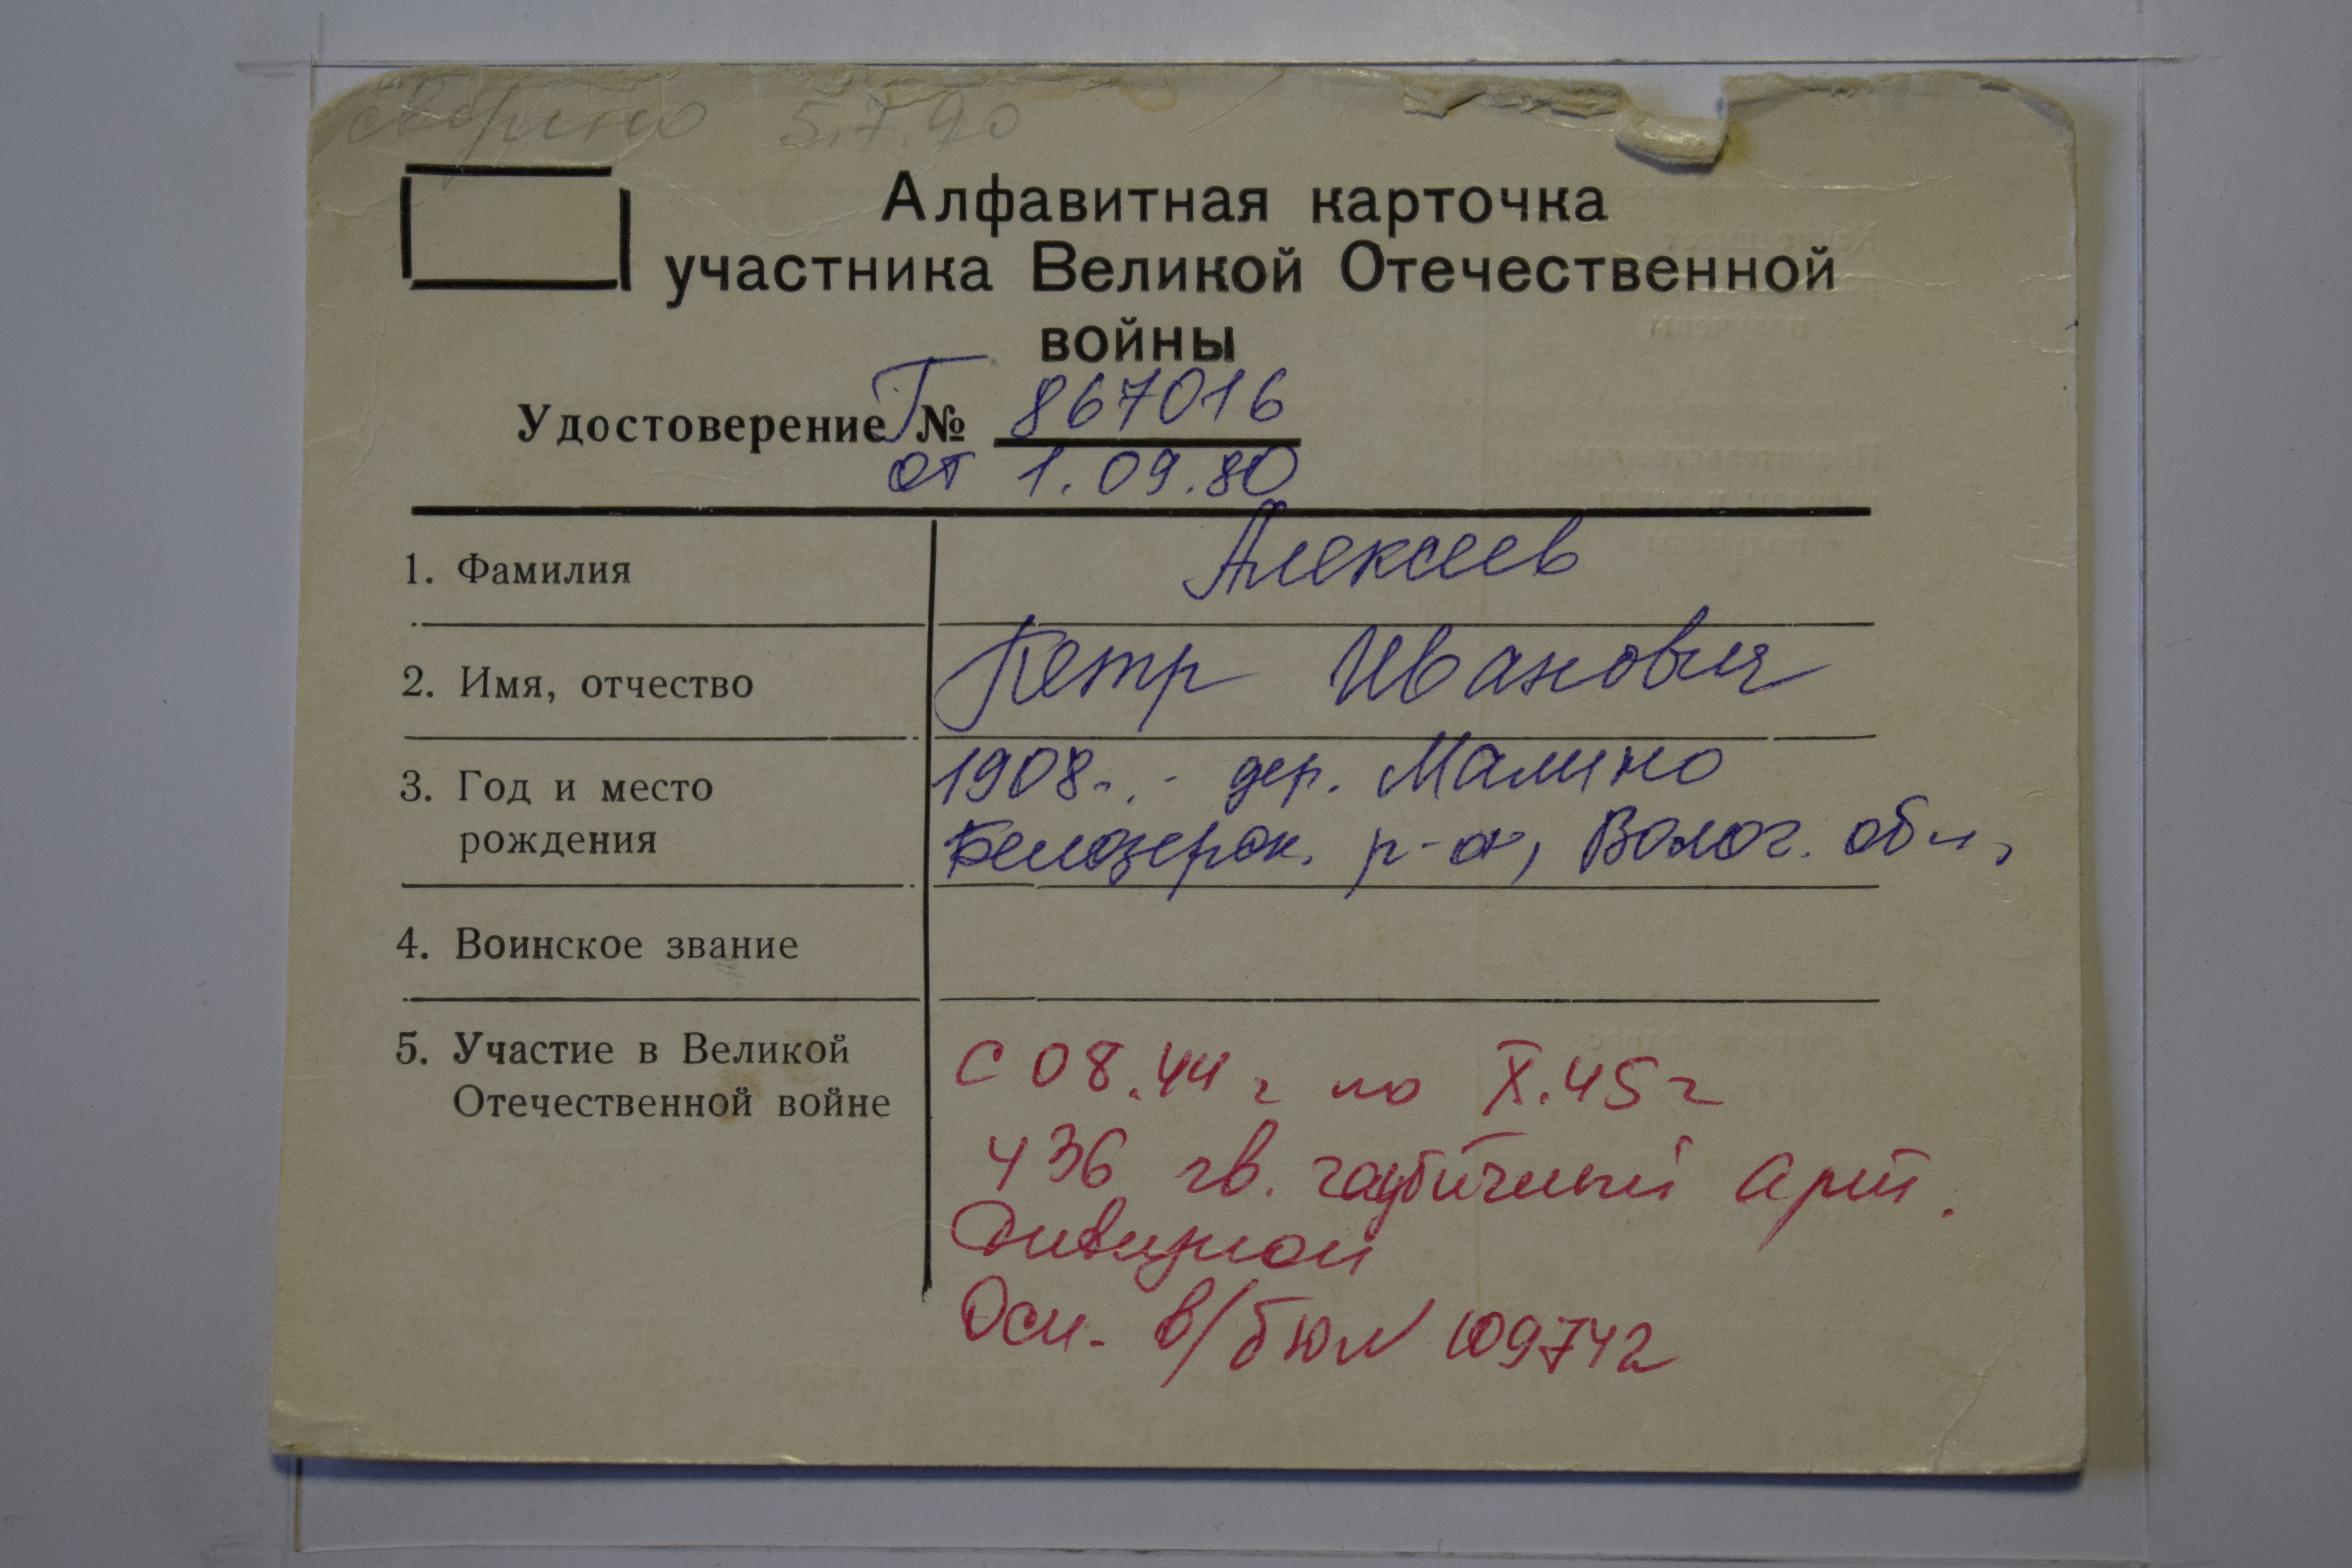 сверено 5.7.90
Алфавитная карточка
участника Великой Отечественной
войны
Удостоверение Г № 867016
от 1.09.80
1. Фамилия Алексеев
2. Имя, отчество Петр Иванович
3. Год и место рождения 1908. . - дер. Малино
Белозерск. р-он, Волог. обл.
4. Воинское звание
5. Участие в Великой Отечественной войне С 08.44 г по X.45 г
436 гв. гаубичный арт.
дивизион
Осн. в/бил 109742